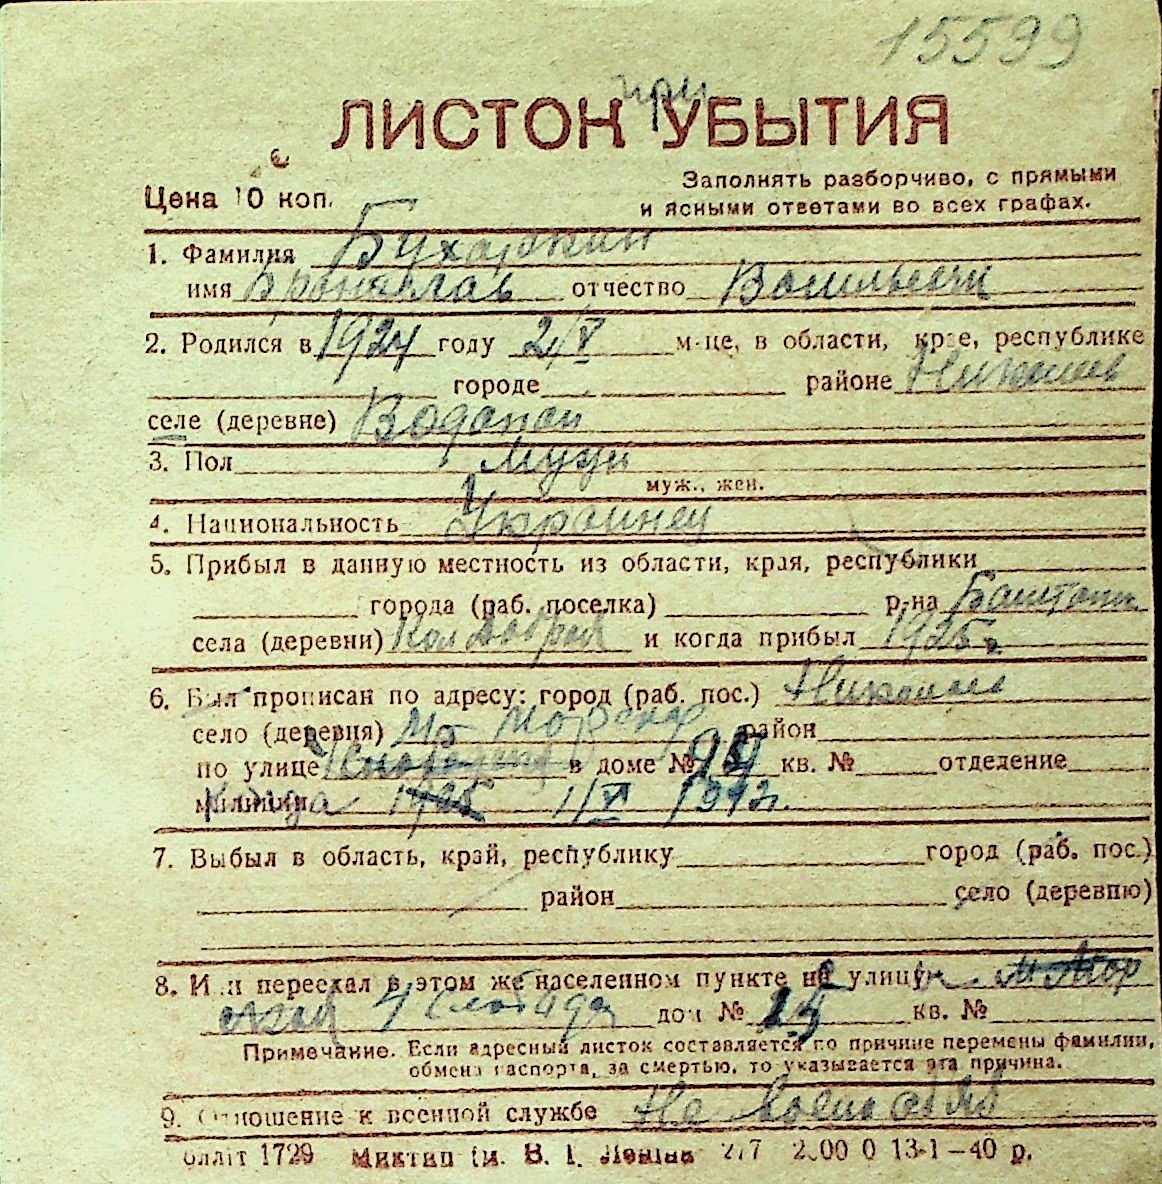 15599
при
ЛИСТОК УБЫТИЯ
Цена 10 коп.
Заполнять разборчиво, с прямыми
и ясными ответами во всех графах.
1. Фамилия Бухаркин
имя Бронислав отчество Васильевич
2. Родился в 1924 году 2/V м-це, в области, крае, республике
городе районе Николаев
селе (деревне) Водопой
3. Пол Муж
муж., жен.
4. Национальность Украинец
5. Прибыл в данную местность из области, края, республики
города (раб. поселка) р-на Баштан
села (деревни) и когда прибыл 1925 г
6. Был прописан по адресу: город (раб. пос.) Николаев
село (деревня) район
по улице в доме № кв. № отделение
милиции когда 1925 1/V 1942.
7. Выбыл в область, край, республику город (раб. пос.)
район село (деревню)
8. Или переехал в этом же населенном пункте на улицу
4 Слобода дом № 25 кв. №
Примечание. Если адресный листок составляется по причине перемены фамилии,
обмена паспорта, за смертью, то указывается эта причина.
9. Отношение к военной службе Не
олліт 1729 В. І. Леніна 277 13-1-40 р.